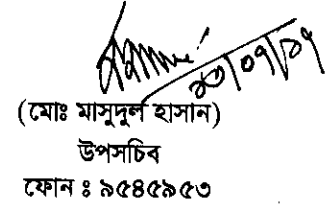 ২৩/০৭/১৭
(মোঃ মাসুদুল হাসান)
উপসচিব
ফোন ঃ ৯৫৪৫৯৫৩